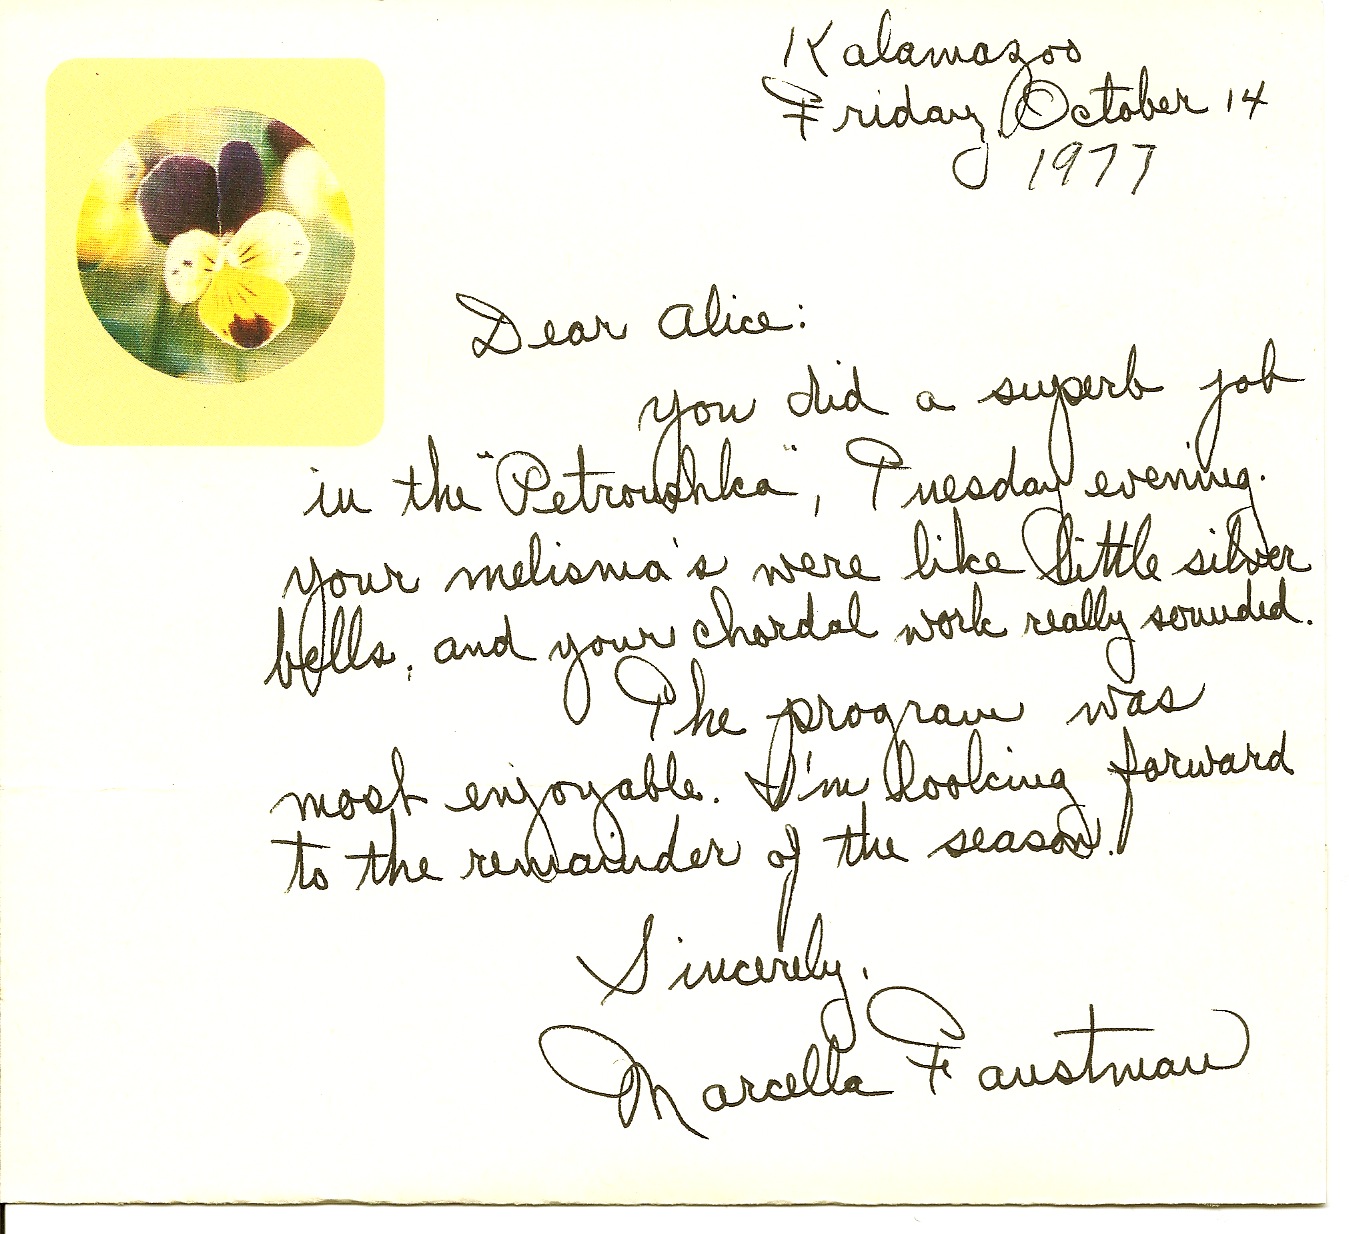 Kalamazoo
Friday, October 14
1977
Dear Alice:
You did a superb job
in the "Petroushka", Tuesday evening.
Your melisma's were like little silver
bells, and your chordal work really sounded.
The program was
most enjoyable. I'm looking forward
to the remainder of the season.
Sincerely,
Marcella Faustman